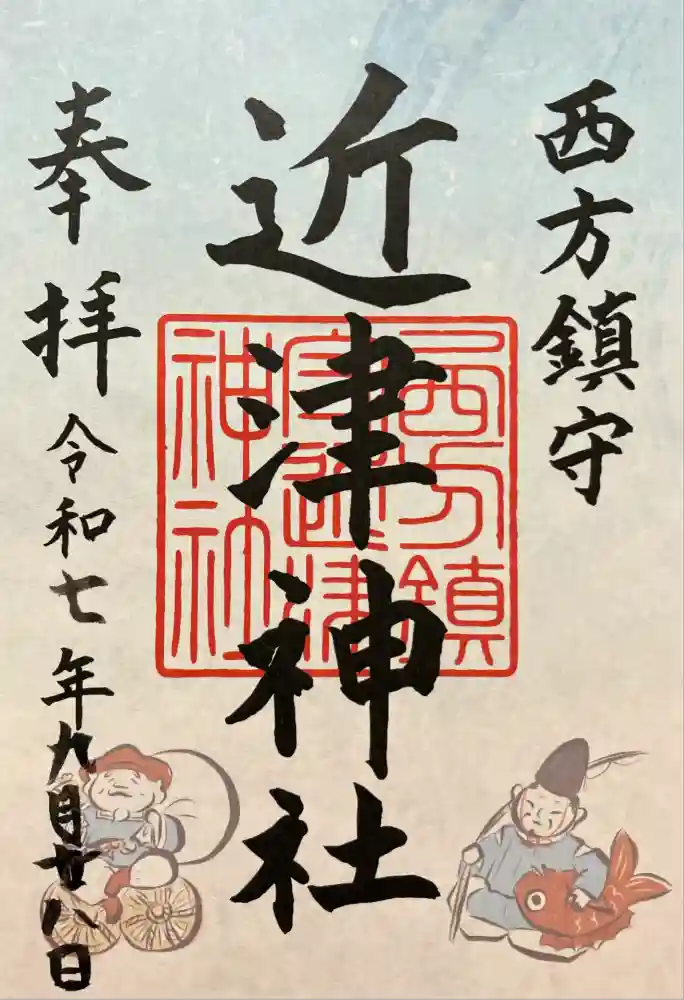 西方鎮守
近津神社
西方鎮
守近津
神社
奉拝
令和七年九月廿八日